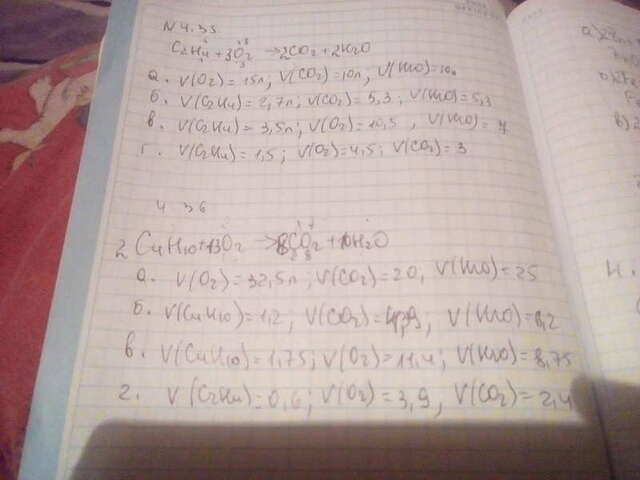 N 4.35
C2H4 + 3O2 → 2CO2 + 2H2O
а. V(O2) = 15л, V(CO2) = 10л; V(H2O) = 10л
б. V(C2H4) = 2,7л; V(CO2) = 5,3; V(H2O) = 5,3
в. V(C2H4) = 3,5л; V(O2) = 10,5, V(H2O) = 7
г. V(C2H4) = 1,5; V(O2) = 4,5; V(CO2) = 3
4 36
2 C4H10 + 13O2 → 8CO2 + 10H2O
а. V(O2) = 32,5л; V(CO2) = 20; V(H2O) = 25
б. V(C4H10) = 1,2; V(CO2) = 4,9; V(H2O) = 6,2
в. V(C4H10) = 1,75; V(O2) = 11,4; V(H2O) = 8,75
г. V(C2H4) = 0,6; V(O2) = 3,9, V(CO2) = 2,4